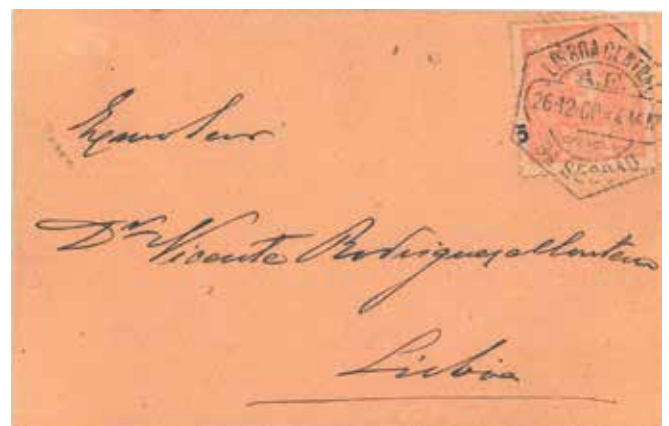 LISBOA CENTRAL
26-12-00
5
SECÇÃO
Exmo Snr
Dr Vicente Rodrigues Monteiro
Lisboa